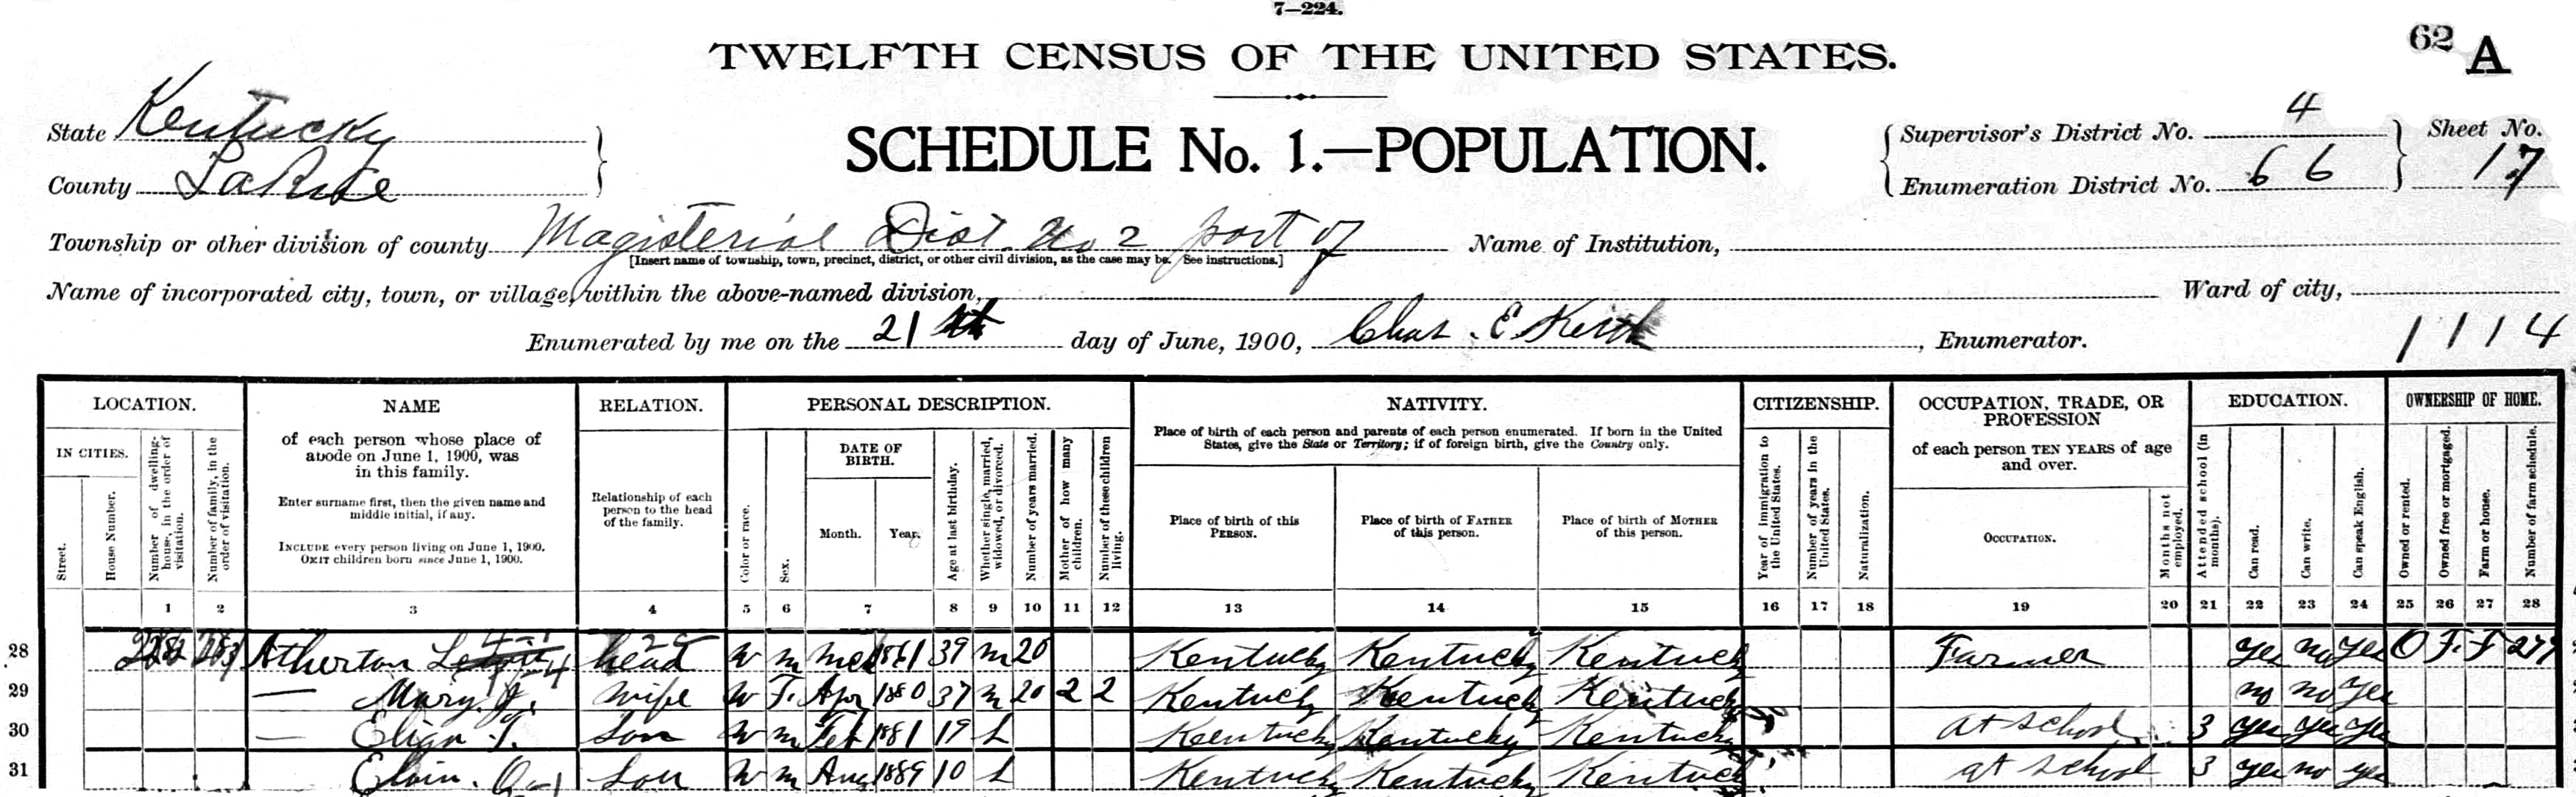 7—224.
TWELFTH CENSUS OF THE UNITED STATES.
62 A
State Kentucky
County LaRue
SCHEDULE No. 1.—POPULATION.
Supervisor's District No. 4
Enumeration District No. 66
Sheet No.
17
Township or other division of county Magisterial Dist. No 2 part of
[Insert name of township, town, precinct, district, or other civil division, as the case may be. See instructions.]
Name of Institution,
Name of incorporated city, town, or village, within the above-named division,
Ward of city,
Enumerated by me on the 21st day of June, 1900, Chas. E Keith, Enumerator.
1114
LOCATION.
IN CITIES.
Street.
House Number.
Number of dwelling-house, in the order of visitation.
Number of family, in the order of visitation.
NAME
of each person whose place of
abode on June 1, 1900, was
in this family.
Enter surname first, then the given name and
middle initial, if any.
INCLUDE every person living on June 1, 1900.
OMIT children born since June 1, 1900.
RELATION.
Relationship of each
person to the head
of the family.
PERSONAL DESCRIPTION.
Color or race.
Sex.
DATE OF
BIRTH.
Month.
Year.
Age at last birthday.
Whether single, married, widowed, or divorced.
Number of years married.
Mother of how many children.
Number of these children living.
NATIVITY.
Place of birth of each person and parents of each person enumerated. If born in the United
States, give the State or Territory; if of foreign birth, give the Country only.
Place of birth of this
PERSON.
Place of birth of FATHER
of this person.
Place of birth of MOTHER
of this person.
CITIZENSHIP.
Year of immigration to the United States.
Number of years in the United States.
Naturalization.
OCCUPATION, TRADE, OR
PROFESSION
of each person TEN YEARS of age
and over.
OCCUPATION.
Months not employed.
EDUCATION.
Attended school (in months).
Can read.
Can write.
Can speak English.
OWNERSHIP OF HOME.
Owned or rented.
Owned free or mortgaged.
Farm or house.
Number of farm schedule.
1 2 3 4 5 6 7 8 9 10 11 12 13 14 15 16 17 18 19 20 21 22 23 24 25 26 27 28
28 Atherton head W m Mch 1861 39 m 20 Kentucky Kentucky Kentucky Farmer yes no yes O F. F
29 — Mary J. wife W F. Apr 1880 37 m 20 2 2 Kentucky Kentucky Kentucky no no yes
30 — T. Son W m Feb 1881 19 S Kentucky Kentucky Kentucky at school 3 yes yes yes
31 Son W m Aug 1889 10 S Kentucky Kentucky Kentucky at school 3 yes no yes